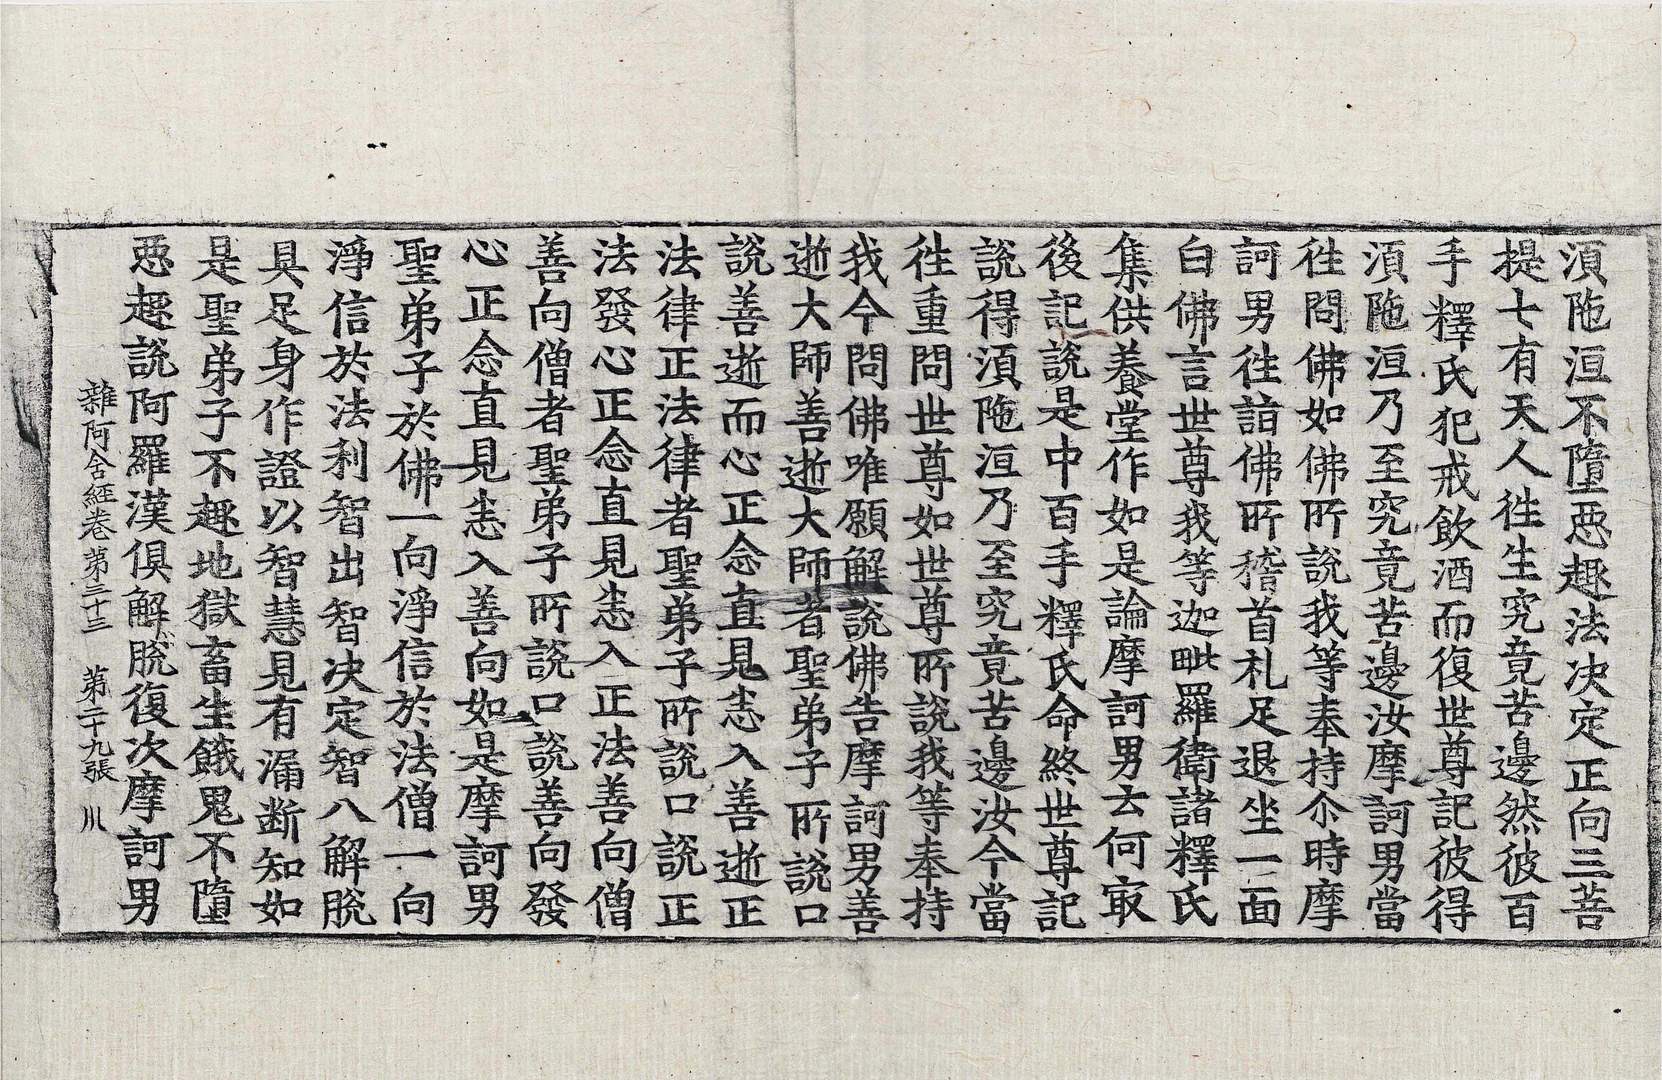 湏陁洹不墮惡趣法决定正向三菩
提七有天人徃生究竟苦邊然彼百
手釋氏犯戒飮酒而復世尊記彼得
湏陁洹乃至究竟苦邊汝摩訶男當
徃問佛如佛所說我等奉持尒時摩
訶男徃詣佛所稽首礼足退坐一面
白佛言世尊我等迦毗羅衛諸釋氏
集供養堂作如是論摩訶男云何㝡
後記說是中百手釋氏命終世尊記
說得湏陁洹乃至究竟苦邊汝今當
徃重問世尊如世尊所說我等奉持
我今問佛唯願解說佛告摩訶男善
逝大師善逝大師者聖弟子所說口
說善逝而心正念直見悉入善逝正
法律正法律者聖弟子所說口說正
法發心正念直見悉入正法善向僧
善向僧者聖弟子所說口說善向發
心正念直見悉入善向如是摩訶男
聖弟子於佛一向淨信於法僧一向
淨信於法利智出智决定智八解脫
具足身作證以智慧見有漏断知如
是聖弟子不趣地獄畜生餓鬼不墮
惡趣說阿羅漢俱解脫復次摩訶男
雜阿含經卷第三十三 第二十九張 川